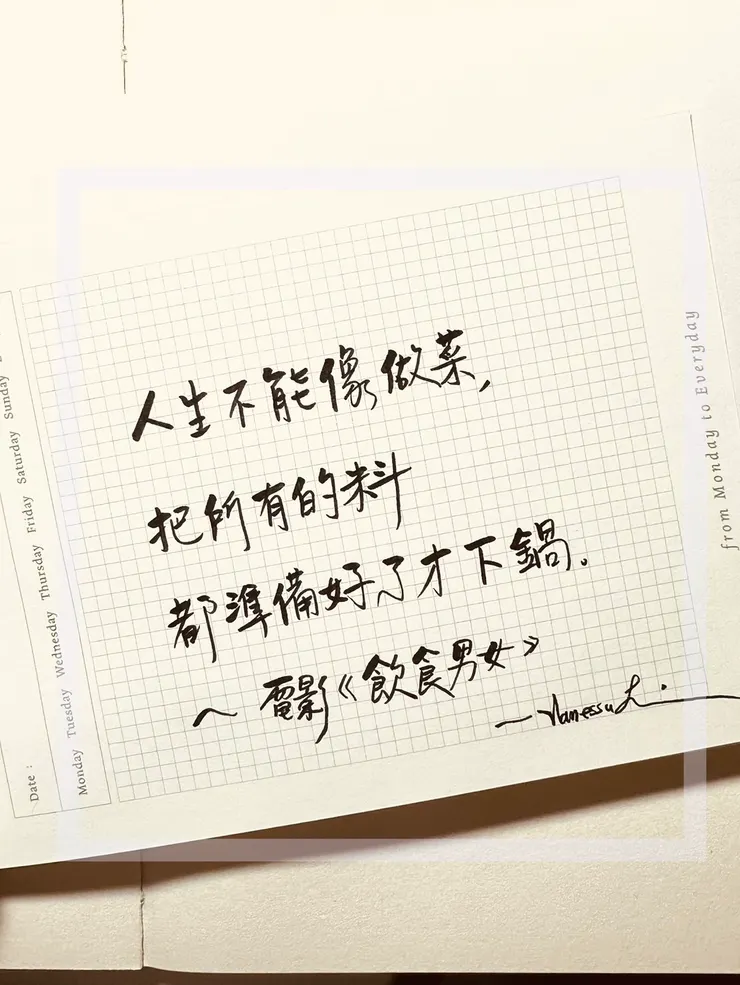 人生不能像做菜，
把所有的料
都準備好了才下鍋。
～電影《飲食男女》
—Vanessa L.
from Monday to Everyday
Date :
Monday Tuesday Wednesday Thursday Friday Saturday Sunday